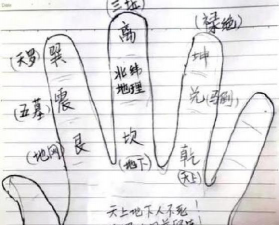 三坛
(天罗) 巽 离 坤 (禄绝)
北纬
地理
(五墓) 震 兑
(地网) 艮 坎 (地下) 乾 (天上)
天上地下人不死!